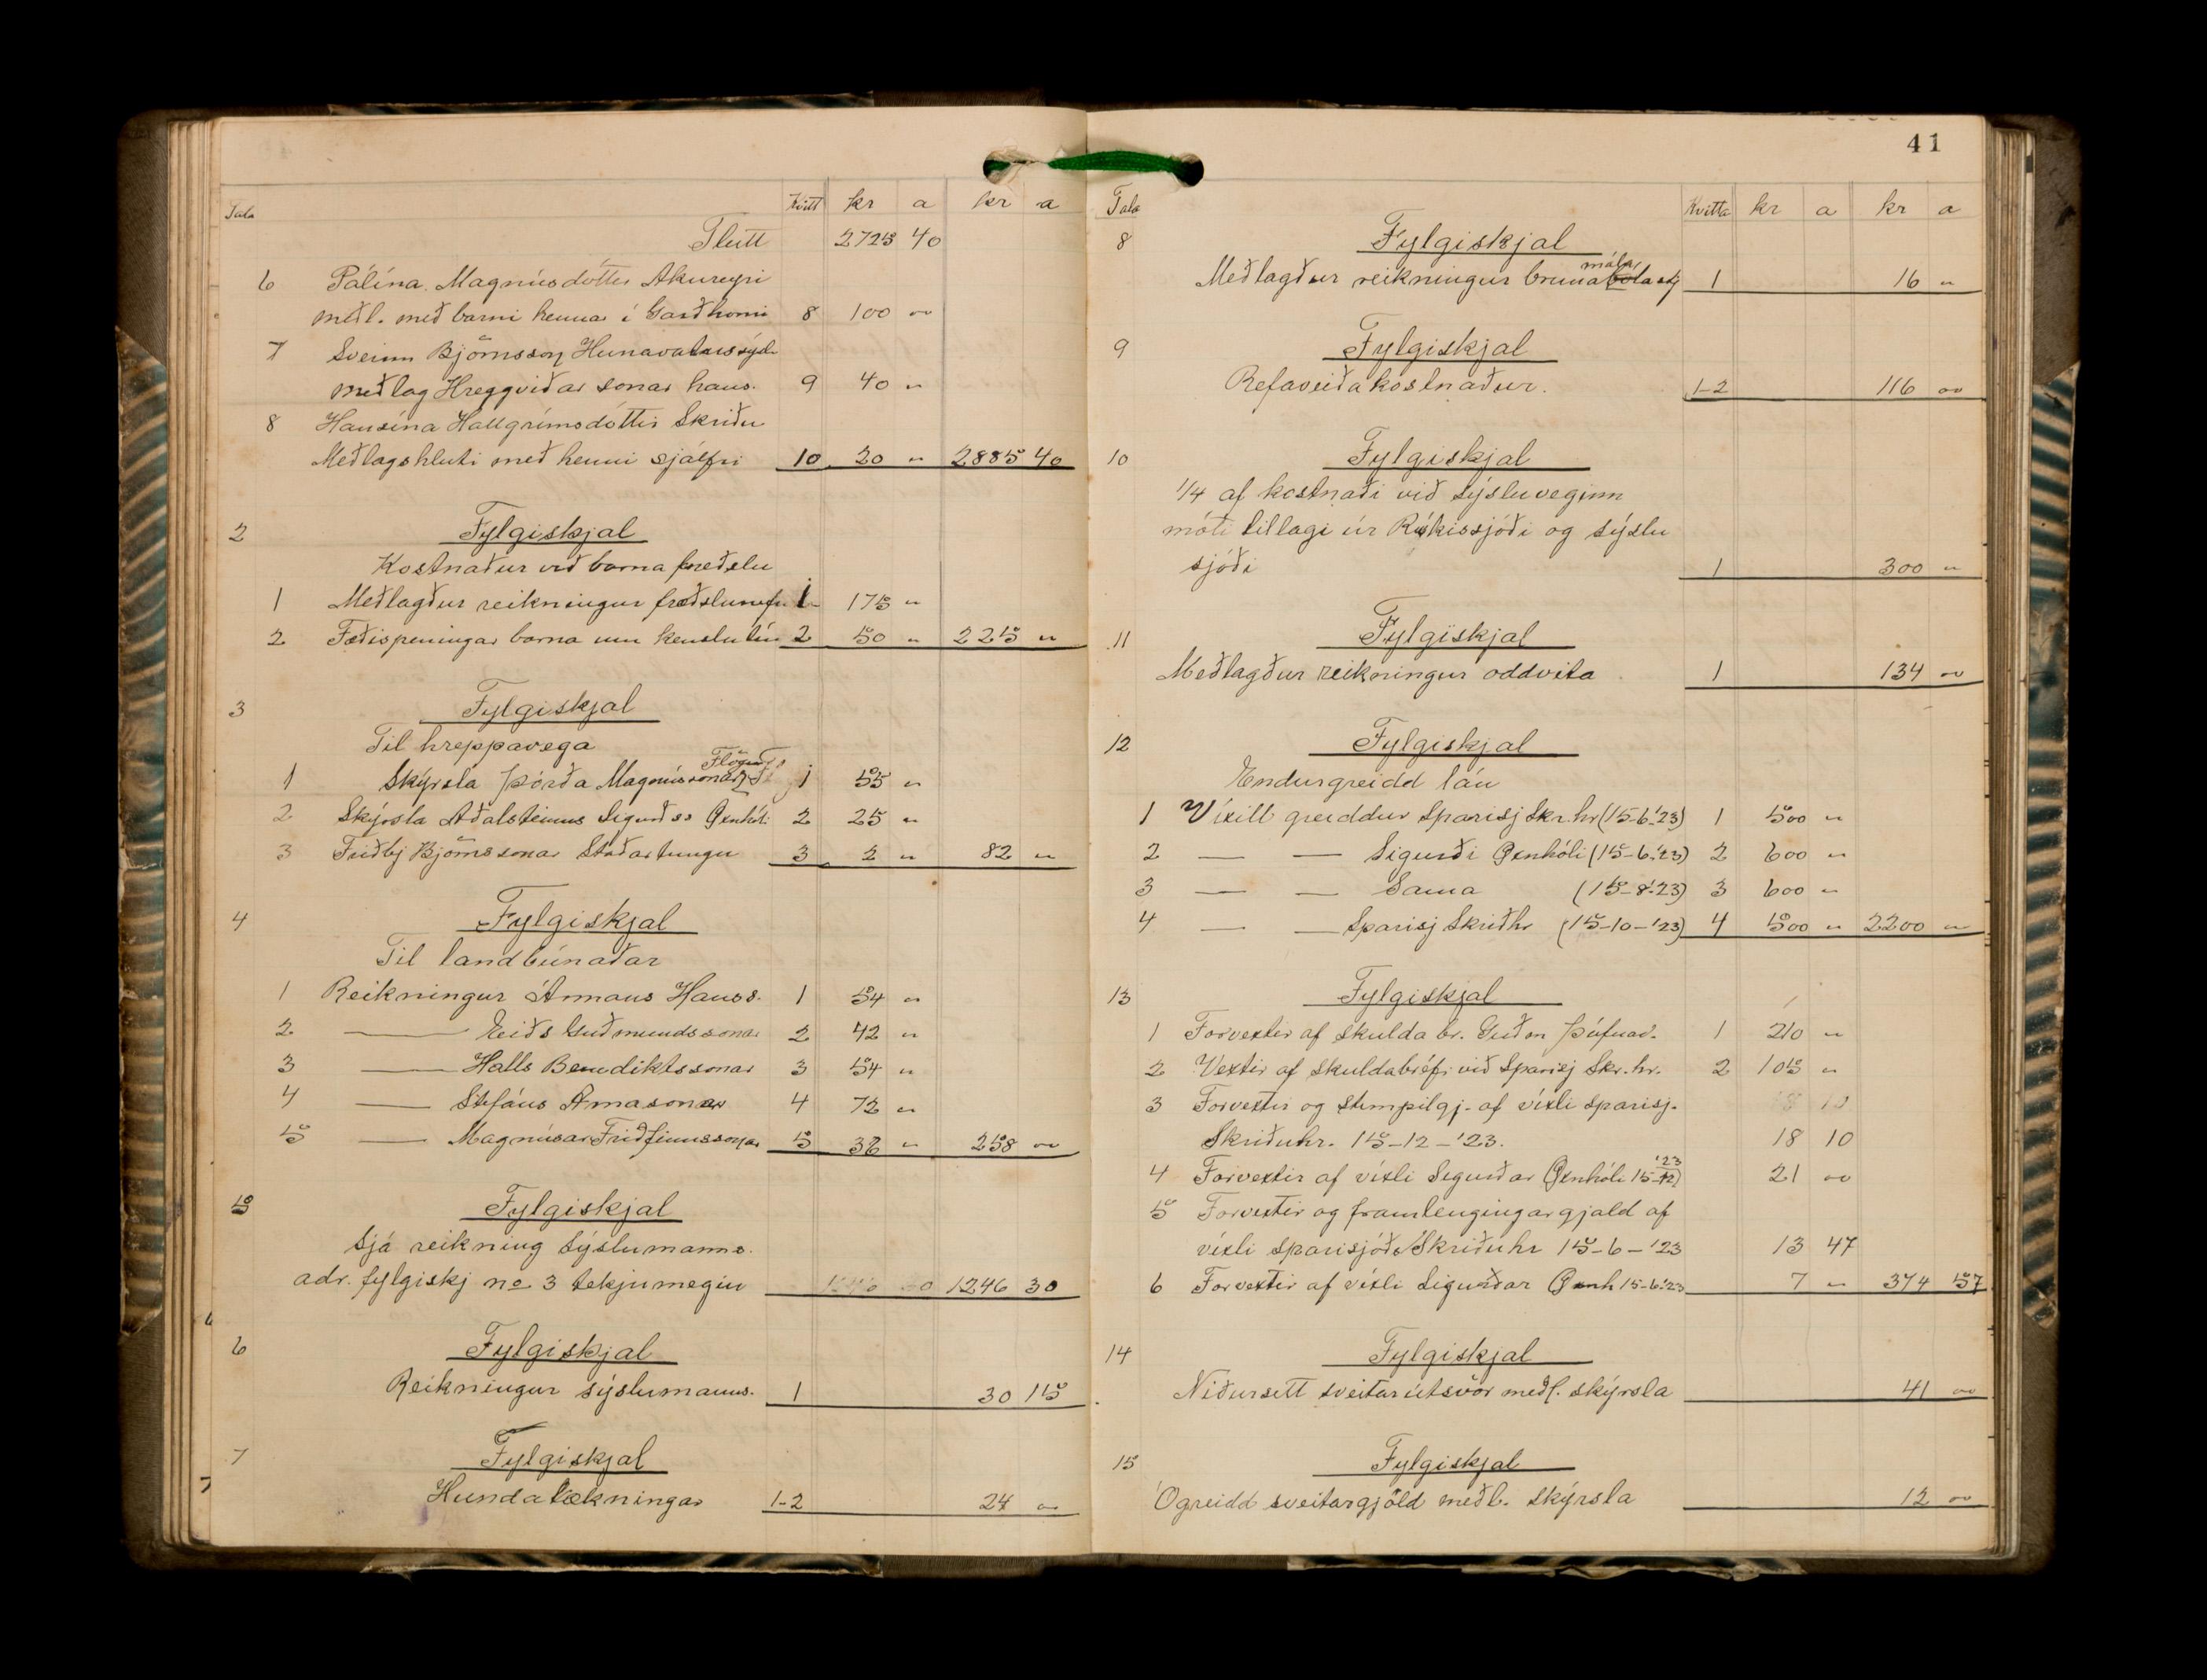 Tala Kvitt kr a kr a
Flutt 2725 40
6 Pálína Magnúsdóttir Akureyri
meðl. með barni hennar í Garðhorni 8 100 "
7 Sveinn Björnsson Hunavatnssýslu
meðlag Hreggviðar sonar hans. 9 40 "
8 Hansína Hallgrímsdóttir Skriðu
Meðlagshluti með henni sjálfri 10 20 " 2885 40
2 Fylgiskjal
Kostnaður við barna fræðslu
1 Meðlagður reikningur fræðslunefn. 1 175 "
2 Fæðispeningar barna um kenslutím 2 50 " 225 "
3 Fylgiskjal
Til hreppavega
1 Skýrsla Þórða Magnússonar 1 55 "
2 Skýrsla Aðalsteins Sigurðss Öxnhóli 2 25 "
3 Friðbj Björnssonar Staðartungu 3 2 " 82 "
4 Fylgiskjal
Til landbúnaðar
1 Reikningur Ármans Hanss. 1 54 "
2 — Eiðs Guðmundssonar 2 42 "
3 — Halls Benediktssonar 3 54 "
4 — Stefáns Árnasonar 4 72 "
5 — Magnúsar Friðfinnssonar 5 36 " 258 "
5 Fylgiskjal
Sjá reikning Sýslumanns.
adr. fylgiskj no 3 tekjumegin 1246 30
6 Fylgiskjal
Reikningur sýslumanns. 1 30 15
7 Fylgiskjal
Hundalækningar 1-2 24 "
41
Tala Kvitta kr a kr a
8 Fylgiskjal
mála
Meðlagður reikningur brunabota stj 1 16 "
9 Fylgiskjal
Refaveiðakostnaður. 1-2 116 "
10 Fylgiskjal
1/4 af kostnaði við sýsluveginn
móti tillagi úr Ríkissjóði og sýslu
sjóði 1 300 "
11 Fylgiskjal
Meðlagður reikningur oddvita 1 134 "
12 Fylgiskjal
Endurgreidd lán
1 Víxill greiddur Sparisj Skr. hr (15-6-'23) 1 500 "
2 — — Sigurði Öxnhóli (15-6-'23) 2 600 "
3 — — Sama (15-8-'23) 3 600 "
4 — — Sparisj Skriðhr (15-10-'23) 4 500 " 2200 "
13 Fylgiskjal
1 Forvextir af skulda br. Guðm Þúfnav. 1 210 "
2 Vextir af skuldabréfi við Sparisj Skr. hr. 2 105 "
3 Forvextir og stimpilgj. af víxli sparisj.
Skriðuhr. 15-12-'23. 18 10
4 Forvextir af víxli Sigurðar Öxnhóli 15-12 '23 21 "
5 Forvextir og framlengingargjald af
víxli sparisjóðs Skriðuhr 15-6-'23 13 47
6 Forvextir af víxli Sigurðar Öxnh 15-6-'23 7 " 374 57
14 Fylgiskjal
Niðursett sveitarútsvör meðf. skýrsla 41 "
15 Fylgiskjal
Ógreidd sveitargjöld meðl. skýrsla 12 "